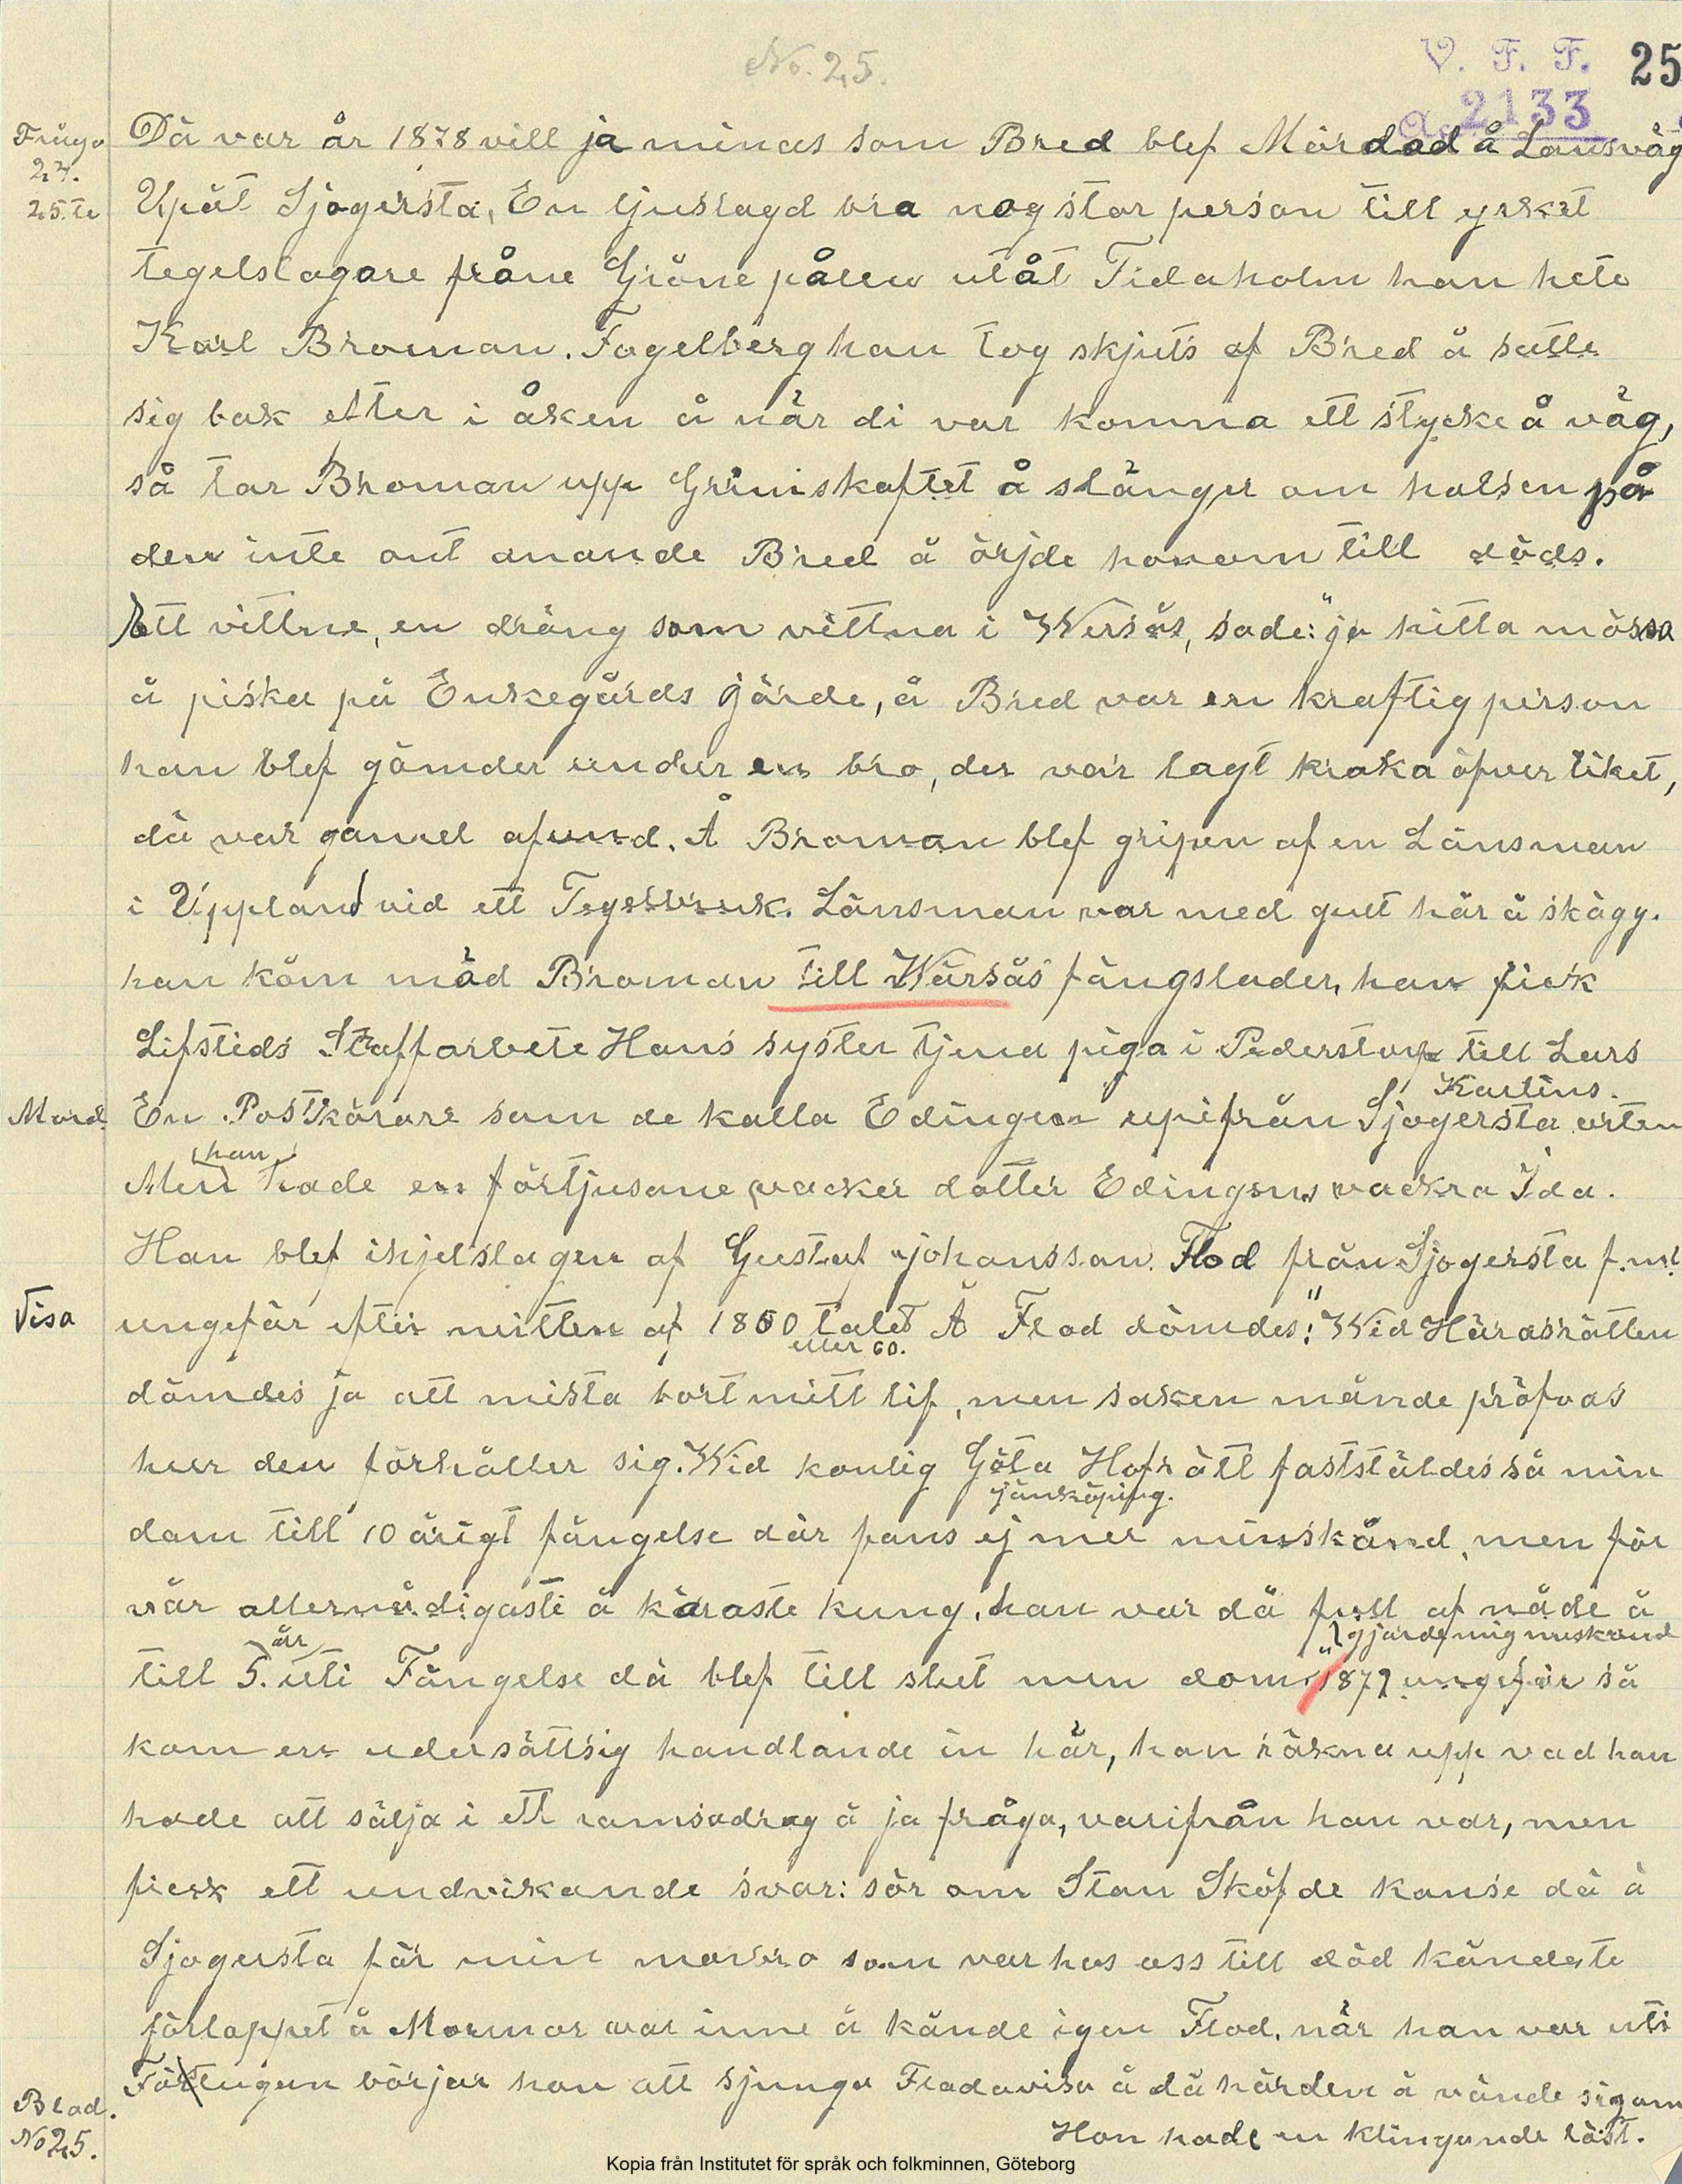 No. 25.
V. F. F. 25
2133
Fråga Dä var år 1878 vill ja minas som Bred blef Mördad å Lansväg
24. 25.te Upåt Sjogersta, En ljuslagd bra nog stor person till yrket
tegelslagare fråne Gröne pålen utåt Tidaholm han hete
Karl Broman. Fogelberg han tog skjuts af Bred å satte
sig bak etter i åken å när di var komna ett stycke å väg,
så tar Broman upp Grimskaftet å slänger om halsen på
den inte ont anande Bred å örjde honom till döds.
Ett vittne, en dräng som vittna i Wersås, sade: "ja hitta mössa
å piska på Enkegårds järde, å Bred var en kraftig person
han blef gömder under en bro, der var lagt kraka öfver liket,
dä var gamel afund. Å Broman blef gripen af en Länsman
i Uppland vid ett Tegelbruk. Länsman var med gult hår å skägg.
han köm mäd Broman till Wärsås fängslader, han fick
Lifstids Straffarbete Hans syster tjena piga i Pederstorp till Lars
Karlins.
Mord. En Postkörare som de kalla Edingen upifrån Sjogersta orten
han
Men hade en förtjusane vacker dotter Edingens vackra Ida.
Han blef ihjelslagen af Gustaf Johansson Flod från Sjogersta
Visa ungefär efter mitten af 1850 talet Å Flod dömdes: "Wid Häradsrätten
eller 60.
dömdes ja att mista bort mitt lif, men saken månde pröfvas
hur den förhåller sig. Wid konlig Göta Hofrätt faststäldes så min
jönköping.
dom till 10 årigt fängelse där fans ej mer minskånd, men för
vår allernådigaste å käraste kung, han var då full af nåde å
gjorde mig miskund
år
till 5. uti Fängelse dä blef till slut min dom." 1879 ungefär så
kom en udersåttsig handlande in här, han räkna upp vad han
hade att sälja i ett ramsadrag å ja fråga, varifrån han var, men
fick ett undvikande svar: sör om Stan Sköfde kanse dä ä
Sjogersta för min morbro som var hos oss till död kändete
förloppet å Mormor var inne å kände igen Flod, när han var uti
Förstugan börjar hon att sjunga Flodavisa å dä hörden å vände sig om
Hon hade en klingande röst.
Blad.
No 25.
Kopia från Institutet för språk och folkminnen, Göteborg